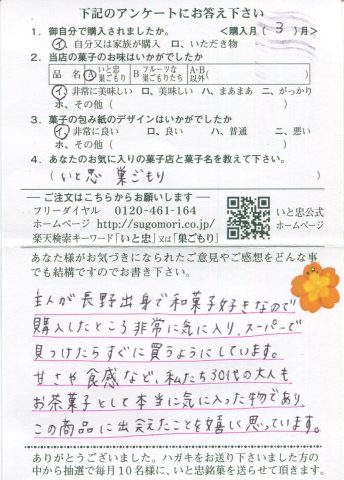 下記のアンケートにお答え下さい
1. 御自分で購入されましたか。 <購入月( 3 )月>
イ. 自分又は家族が購入 ロ. いただき物
2. 当店の菓子のお味はいかがでしたか
品名 A いと忠巣ごもり B フルーツな巣ごもりたち A-B以外( )
イ. 非常に美味しい ロ. 美味しい ハ. まぁまぁ ニ. がっかり
ホ. その他( )
3. 菓子の包み紙のデザインはいかがでしたか
イ. 非常に良い ロ. 良い ハ. 普通 ニ. 悪い
ホ. その他( )
4. あなたのお気に入りの菓子店と菓子名を教えて下さい。
( いと忠 巣ごもり )
ご注文はこちらからお願いします
フリーダイヤル 0120-461-164
ホームページ http://sugomori.co.jp/
楽天検索キーワード「いと忠」又は「巣ごもり」
いと忠公式
ホームページ
あなた様がお気づきになられたご意見やご感想をどんな事
でも結構ですのでお書き下さい。
主人が長野出身で和菓子好きなので
購入したところ非常に気に入り、スーパーで
見つけたらすぐに買うようにしています。
甘さや食感など、私たち30代の大人も
お茶菓子として本当に気に入った物であり、
この商品に出会えたことを嬉しく思っています。
ありがとうございました。ハガキをお送り下さいました方の
中から抽選で毎月10名様に、いと忠銘菓を送らせて頂きます。